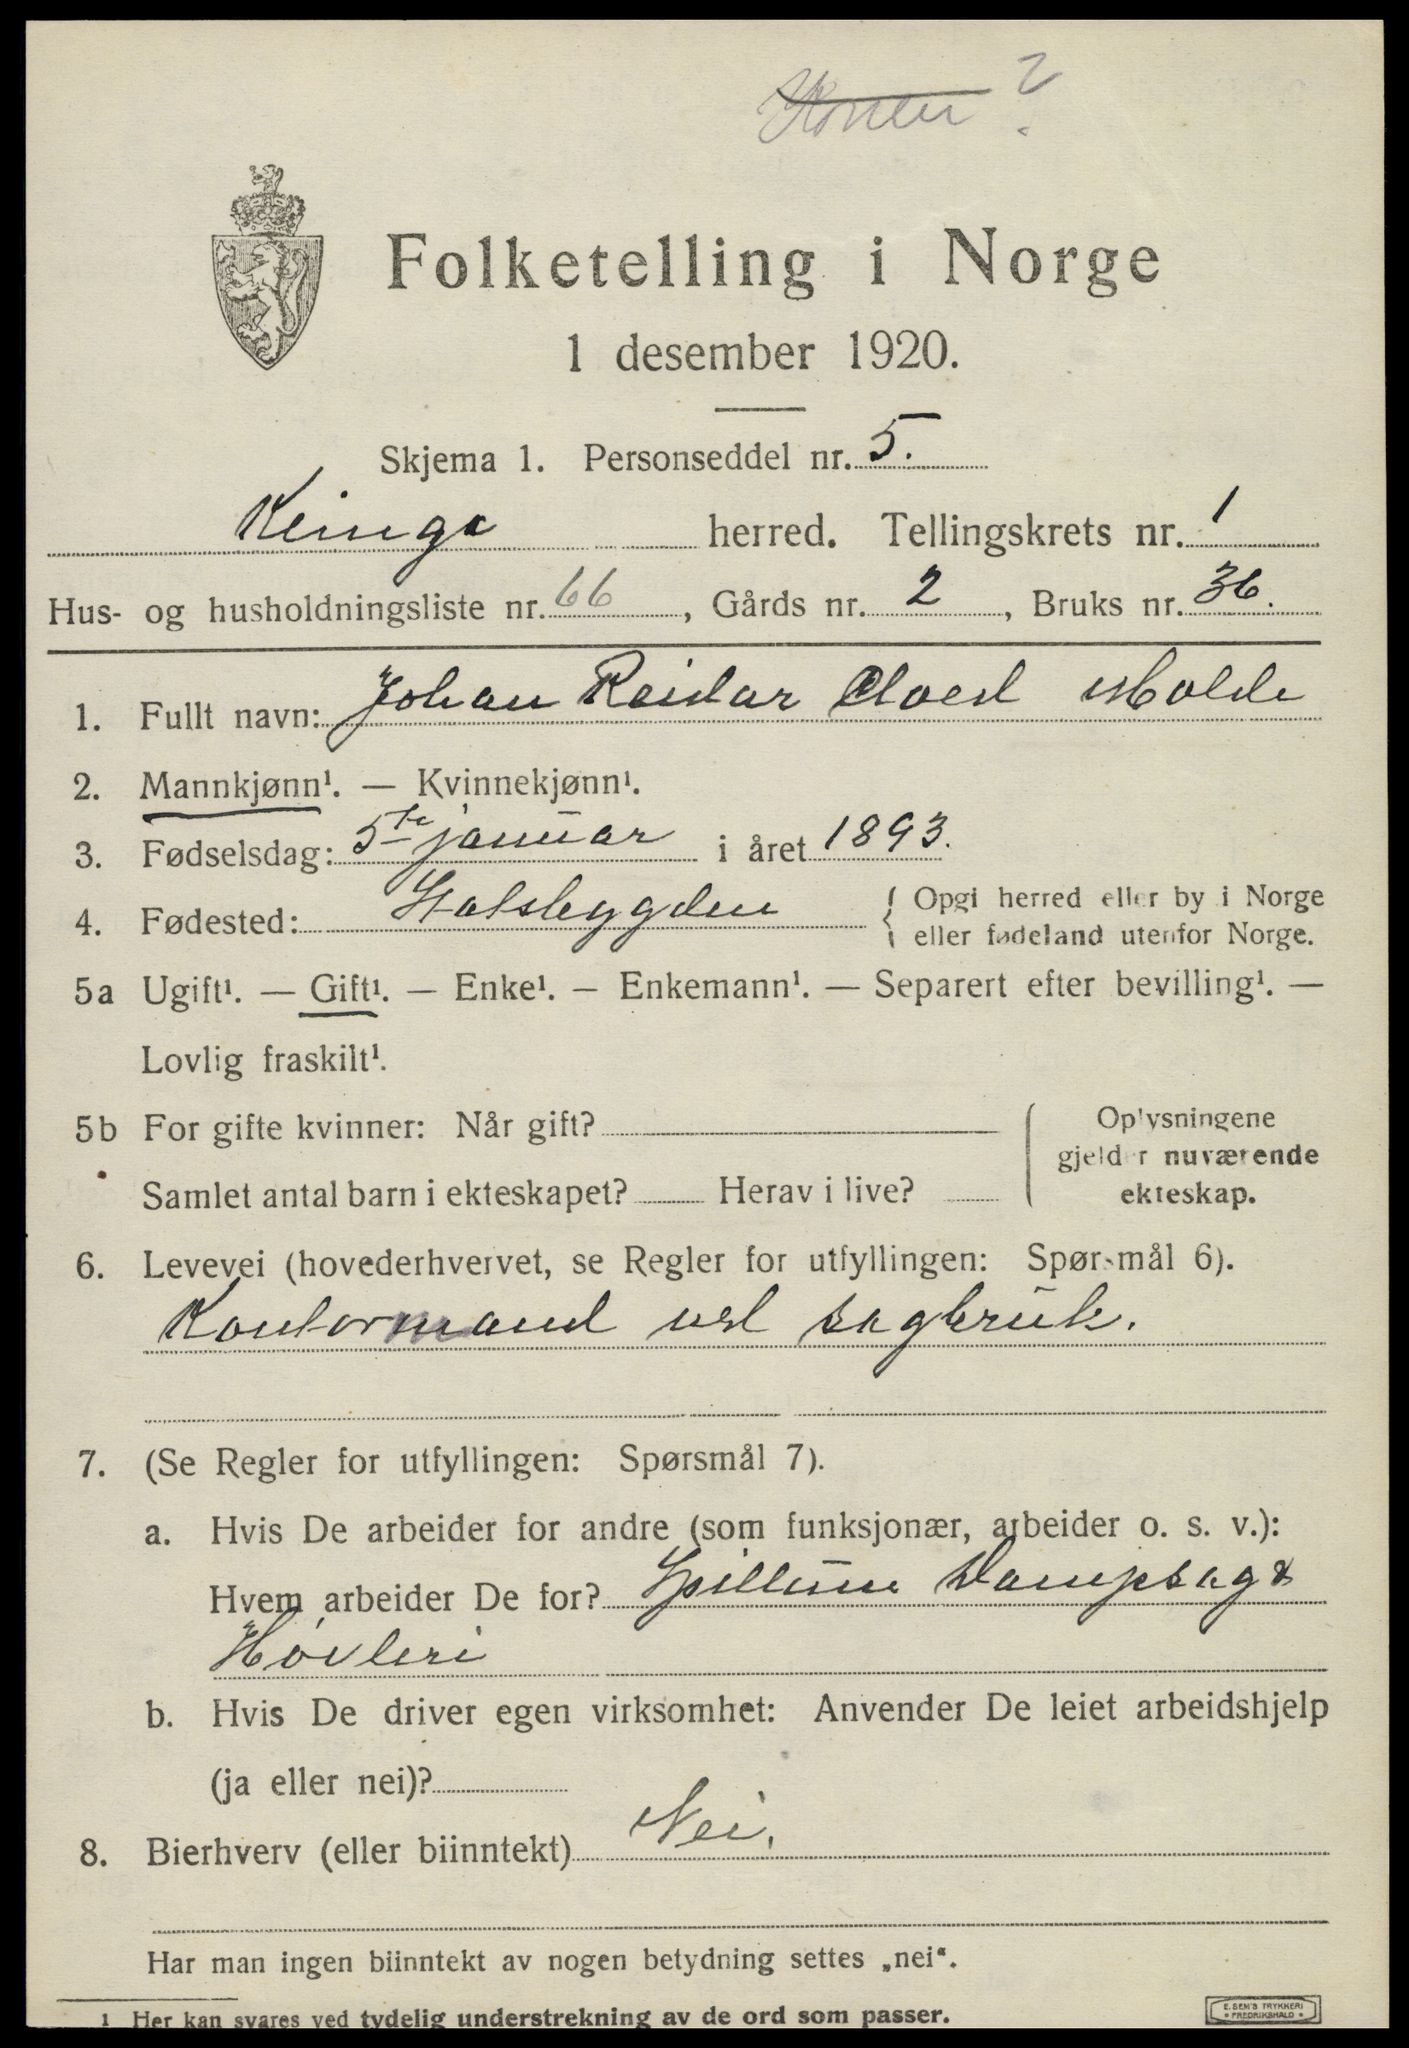 Folketelling i Norge
1 desember 1920.
Skjema 1. Personseddel nr. 5.
Klinga herred. Tellingskrets nr. 1
Hus- og husholdningsliste nr. 66, Gårds nr. 2, Bruks nr. 36.
1. Fullt navn: Johan Reidar Moe
2. Mannkjønn¹. — Kvinnekjønn¹.
3. Fødselsdag: 5te januar i året 1893.
4. Fødested: Statsbygden { Opgi herred eller by i Norge
eller fødeland utenfor Norge.
5a Ugift¹. — Gift¹. — Enke¹. — Enkemann¹. — Separert efter bevilling¹. —
Lovlig fraskilt¹.
5b For gifte kvinner: Når gift?
Samlet antal barn i ekteskapet? Herav i live?
Oplysningene
gjelder nuværende
ekteskap.
6. Levevei (hovederhvervet, se Regler for utfyllingen: Spørsmål 6).
Kontormand ved sagbruk.
7. (Se Regler for utfyllingen: Spørsmål 7).
a. Hvis De arbeider for andre (som funksjonær, arbeider o. s. v.):
Hvem arbeider De for? Spillum Dampsag &
Høvleri
b. Hvis De driver egen virksomhet: Anvender De leiet arbeidshjelp
(ja eller nei)?
8. Bierhverv (eller biinntekt) Nei.
Har man ingen biinntekt av nogen betydning settes „nei“.
1 Her kan svares ved tydelig understrekning av de ord som passer.
E. SEM'S TRYKKERI
• FREDRIKSHALD •